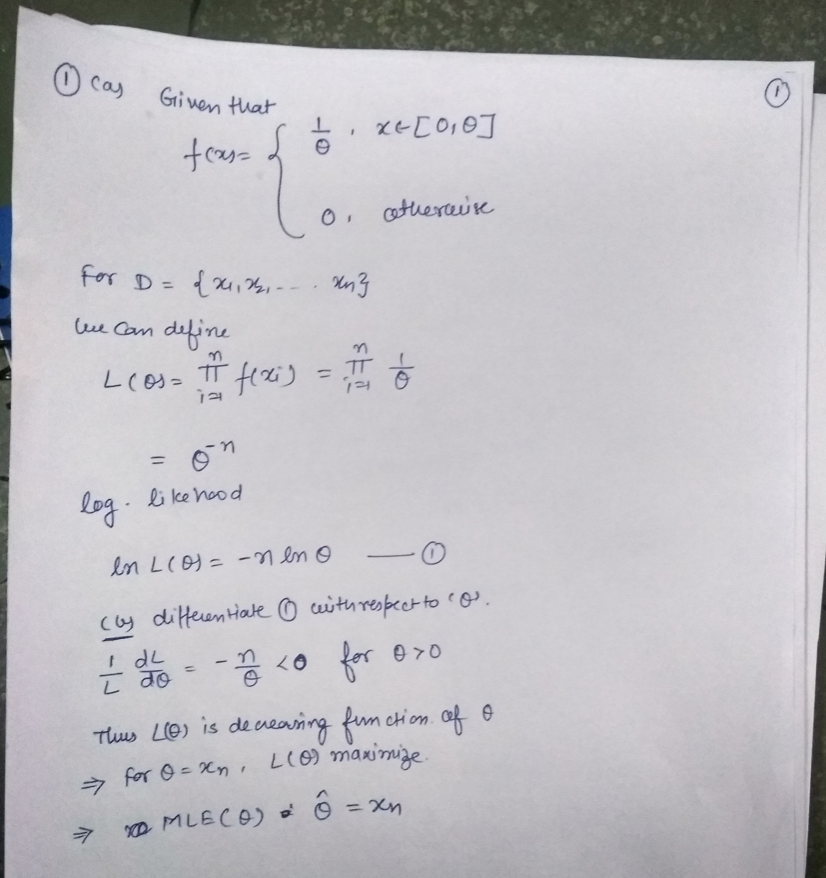 ① (a) Given that ①
f(x) = { 1/θ , x ∈ [0, θ]
0, otherwise
For D = {x1, x2, ... xn}
we can define
L(θ) = n∏i=1 f(xi) = n∏i=1 1/θ
= θ^-n
log. likehood
ln L(θ) = -n ln θ — ①
(b) differentiate ① with respect to 'θ'.
1/L dL/dθ = - n/θ < 0 for θ > 0
Thus L(θ) is decreasing function of θ
⇒ for θ = xn, L(θ) maximize.
⇒ MLE(θ) θ̂ = xn